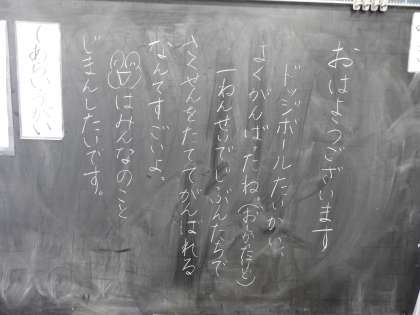 おはようございます
ドッジボールたいかい、
よくがんばったね。(おしかったけど)
一ねんせいでじぶんたちで
さくせんをたててがんばれる
なんてすごいよ。
はみんなのこと
じまんしたいです。